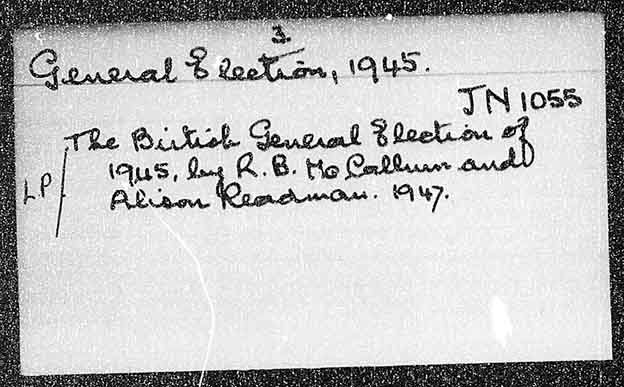 3.
General Election, 1945.
JN 1055
The British General Election of
1945, by R. B. Mc Callum and
L.P.
Alison Readman. 1947.